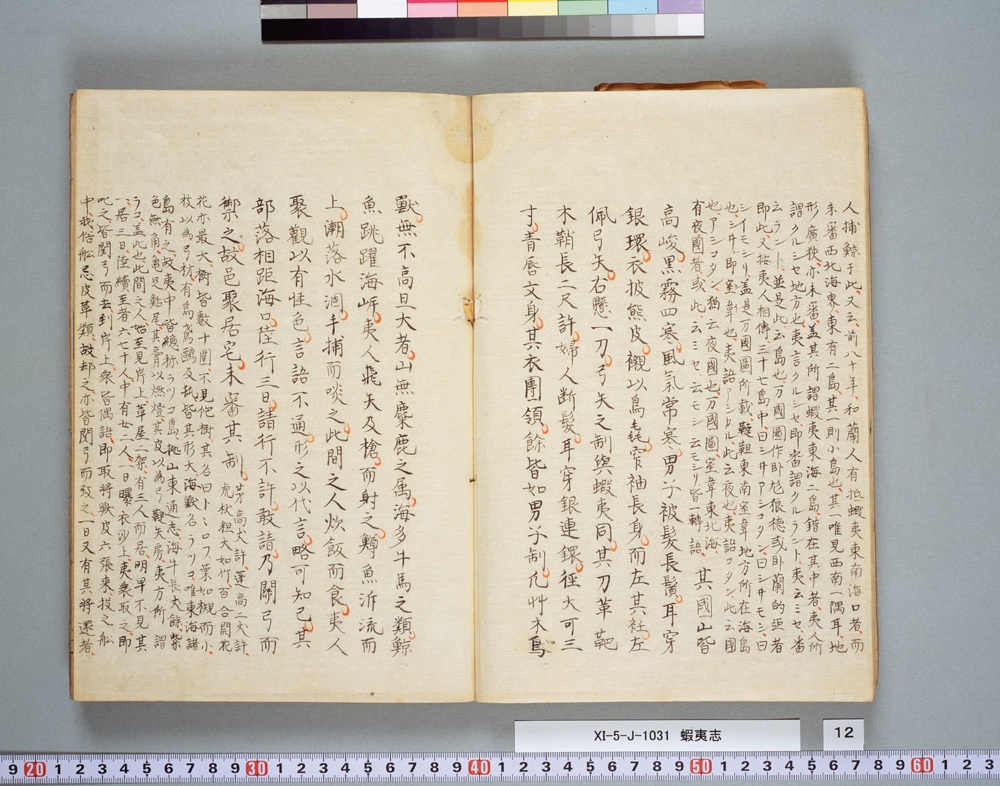 人捕鯨于此、又云前八十年、和蘭人有抵蝦夷東南海口者、而
未審西北海東、東有二島、其一則小島也、其唯見西南一隅耳、地
形廣狹、亦未審、蓋其所謂蝦夷東海二島錯在其中者、夷人所
謂クルミセ地方也、夷言クルシセ即番謂クルランド、夷云ミセ、番
云ランド、並是此云島也、万國圖作
即此又按夷人相傳三十七島中曰シサアシヨタン、曰シサモシン、曰
シイモシリ、蓋是万國圖所載韃靼東南室韋地方所在海島
也、シサ即室韋也、夷語アンクル此云夜也、夷語コタン此云國
也、アンコタン、猶云夜國也、万國圖、室韋東北海
有夜國者或此、云ミセ云モシ云モシリ皆一轉語、其國山皆
高峻、黒霧四寒、風氣常寒、男子被髮長鬚、耳穿
銀環、衣披熊皮、襯以鳥毳、窄袖長身、而左其衽、左
佩弓矢、右懸一刀、弓矢之制與蝦夷同、其刀革靶
木鞘、長二尺許、婦人断髮、耳穿銀連鐶、徑大可三
寸、青唇文身、其衣團領、餘皆如男子制、凡艸木鳥
獸、無不高且大者、山無麋鹿之属、海多牛馬之類、鯨
魚跳躍海岸、夷人飛矢及槍、而射之、鱒魚泝流而
上、潮落水涸、手捕而啖之、此間之人炊飯而食、夷人
聚觀、以有怪色、言語不通、形之以代言、略可知已、其
部落相距、海口陸行三日、請行不許、敢請、乃關弓而
禦之、故邑聚居宅、未審其制、芳高大許、蓮高二丈許、
虎伏粗大如竹、百合開花
花亦最大、樹皆數十圍、不見他樹、其名曰トミロフ、葉如椒而小、
枝以為弓材、有鳥鳶鷗及瓦皆其形大、海獸名ラツコ、唯東海諸
島有之、故夷中皆總称ラツコ島、按山東通志海牛長丈餘紫
色無角、亀足鮎尾、其膏以燃燈、其皮以為弓鞬矢房、夷方所謂
ラコ、蓋此也、此間之人始至見岸上草屋一架、有三人而居、明早不見其
一、居三日陸續至者六七十人、中有女二人、一日曝衣沙上、夷衆取之、即
叱之、皆關弓而去、到岸上衆皆偶語即取將獸皮六張來投之舩
中、我俗舩忌皮革類、故却之、亦皆關弓而去之、一日又有其將還者、
XI-5-J-1031 蝦夷志
12
9 20 1 2 3 4 5 6 7 8 9 30 1 2 3 4 5 6 7 8 9 40 1 2 3 4 5 6 7 8 9 50 1 2 3 4 5 6 7 8 9 60 1 2 3